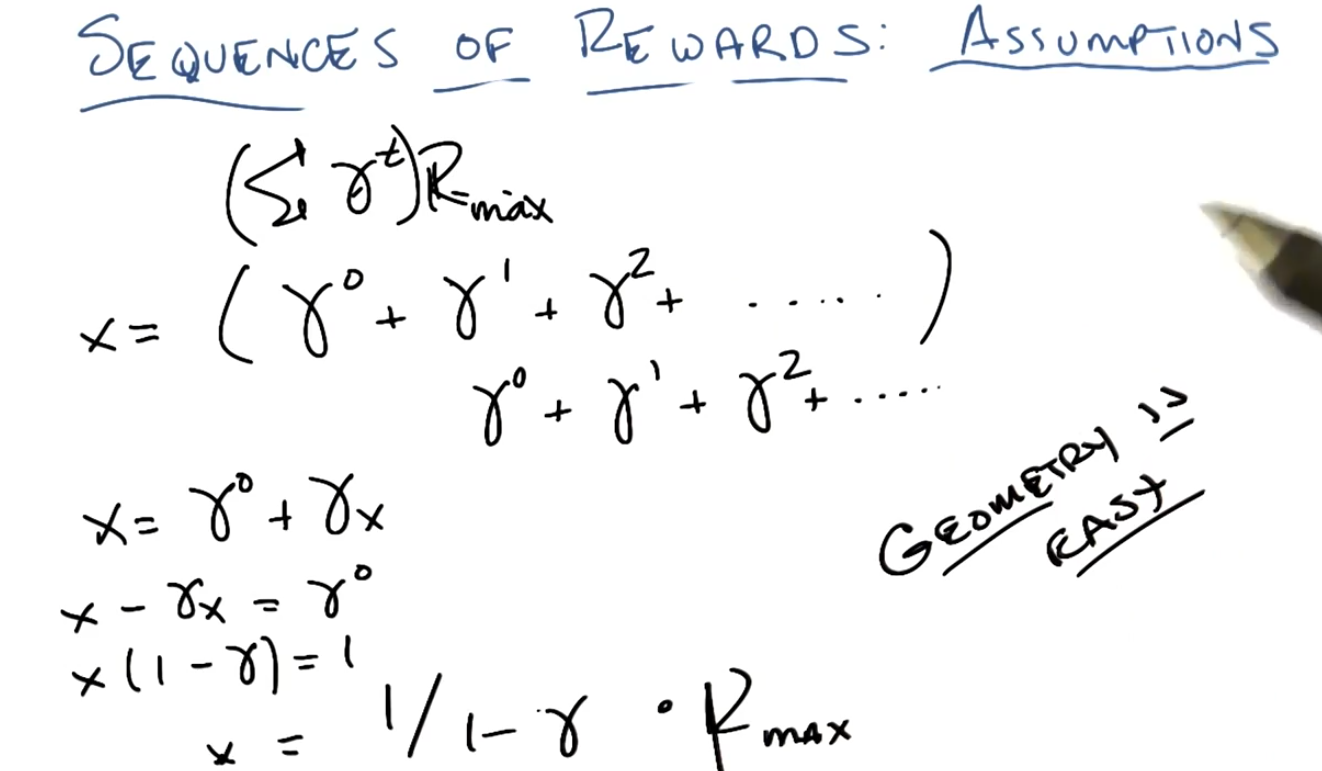 SEQUENCES OF REWARDS: ASSUMPTIONS
(Σ γ^t) R_max
x = (γ^0 + γ^1 + γ^2 + ......)
γ^0 + γ^1 + γ^2 + .....
x = γ^0 + γx
x - γx = γ^0
x(1 - γ) = 1
x = 1/1-γ · R_max
GEOMETRY IS
EASY